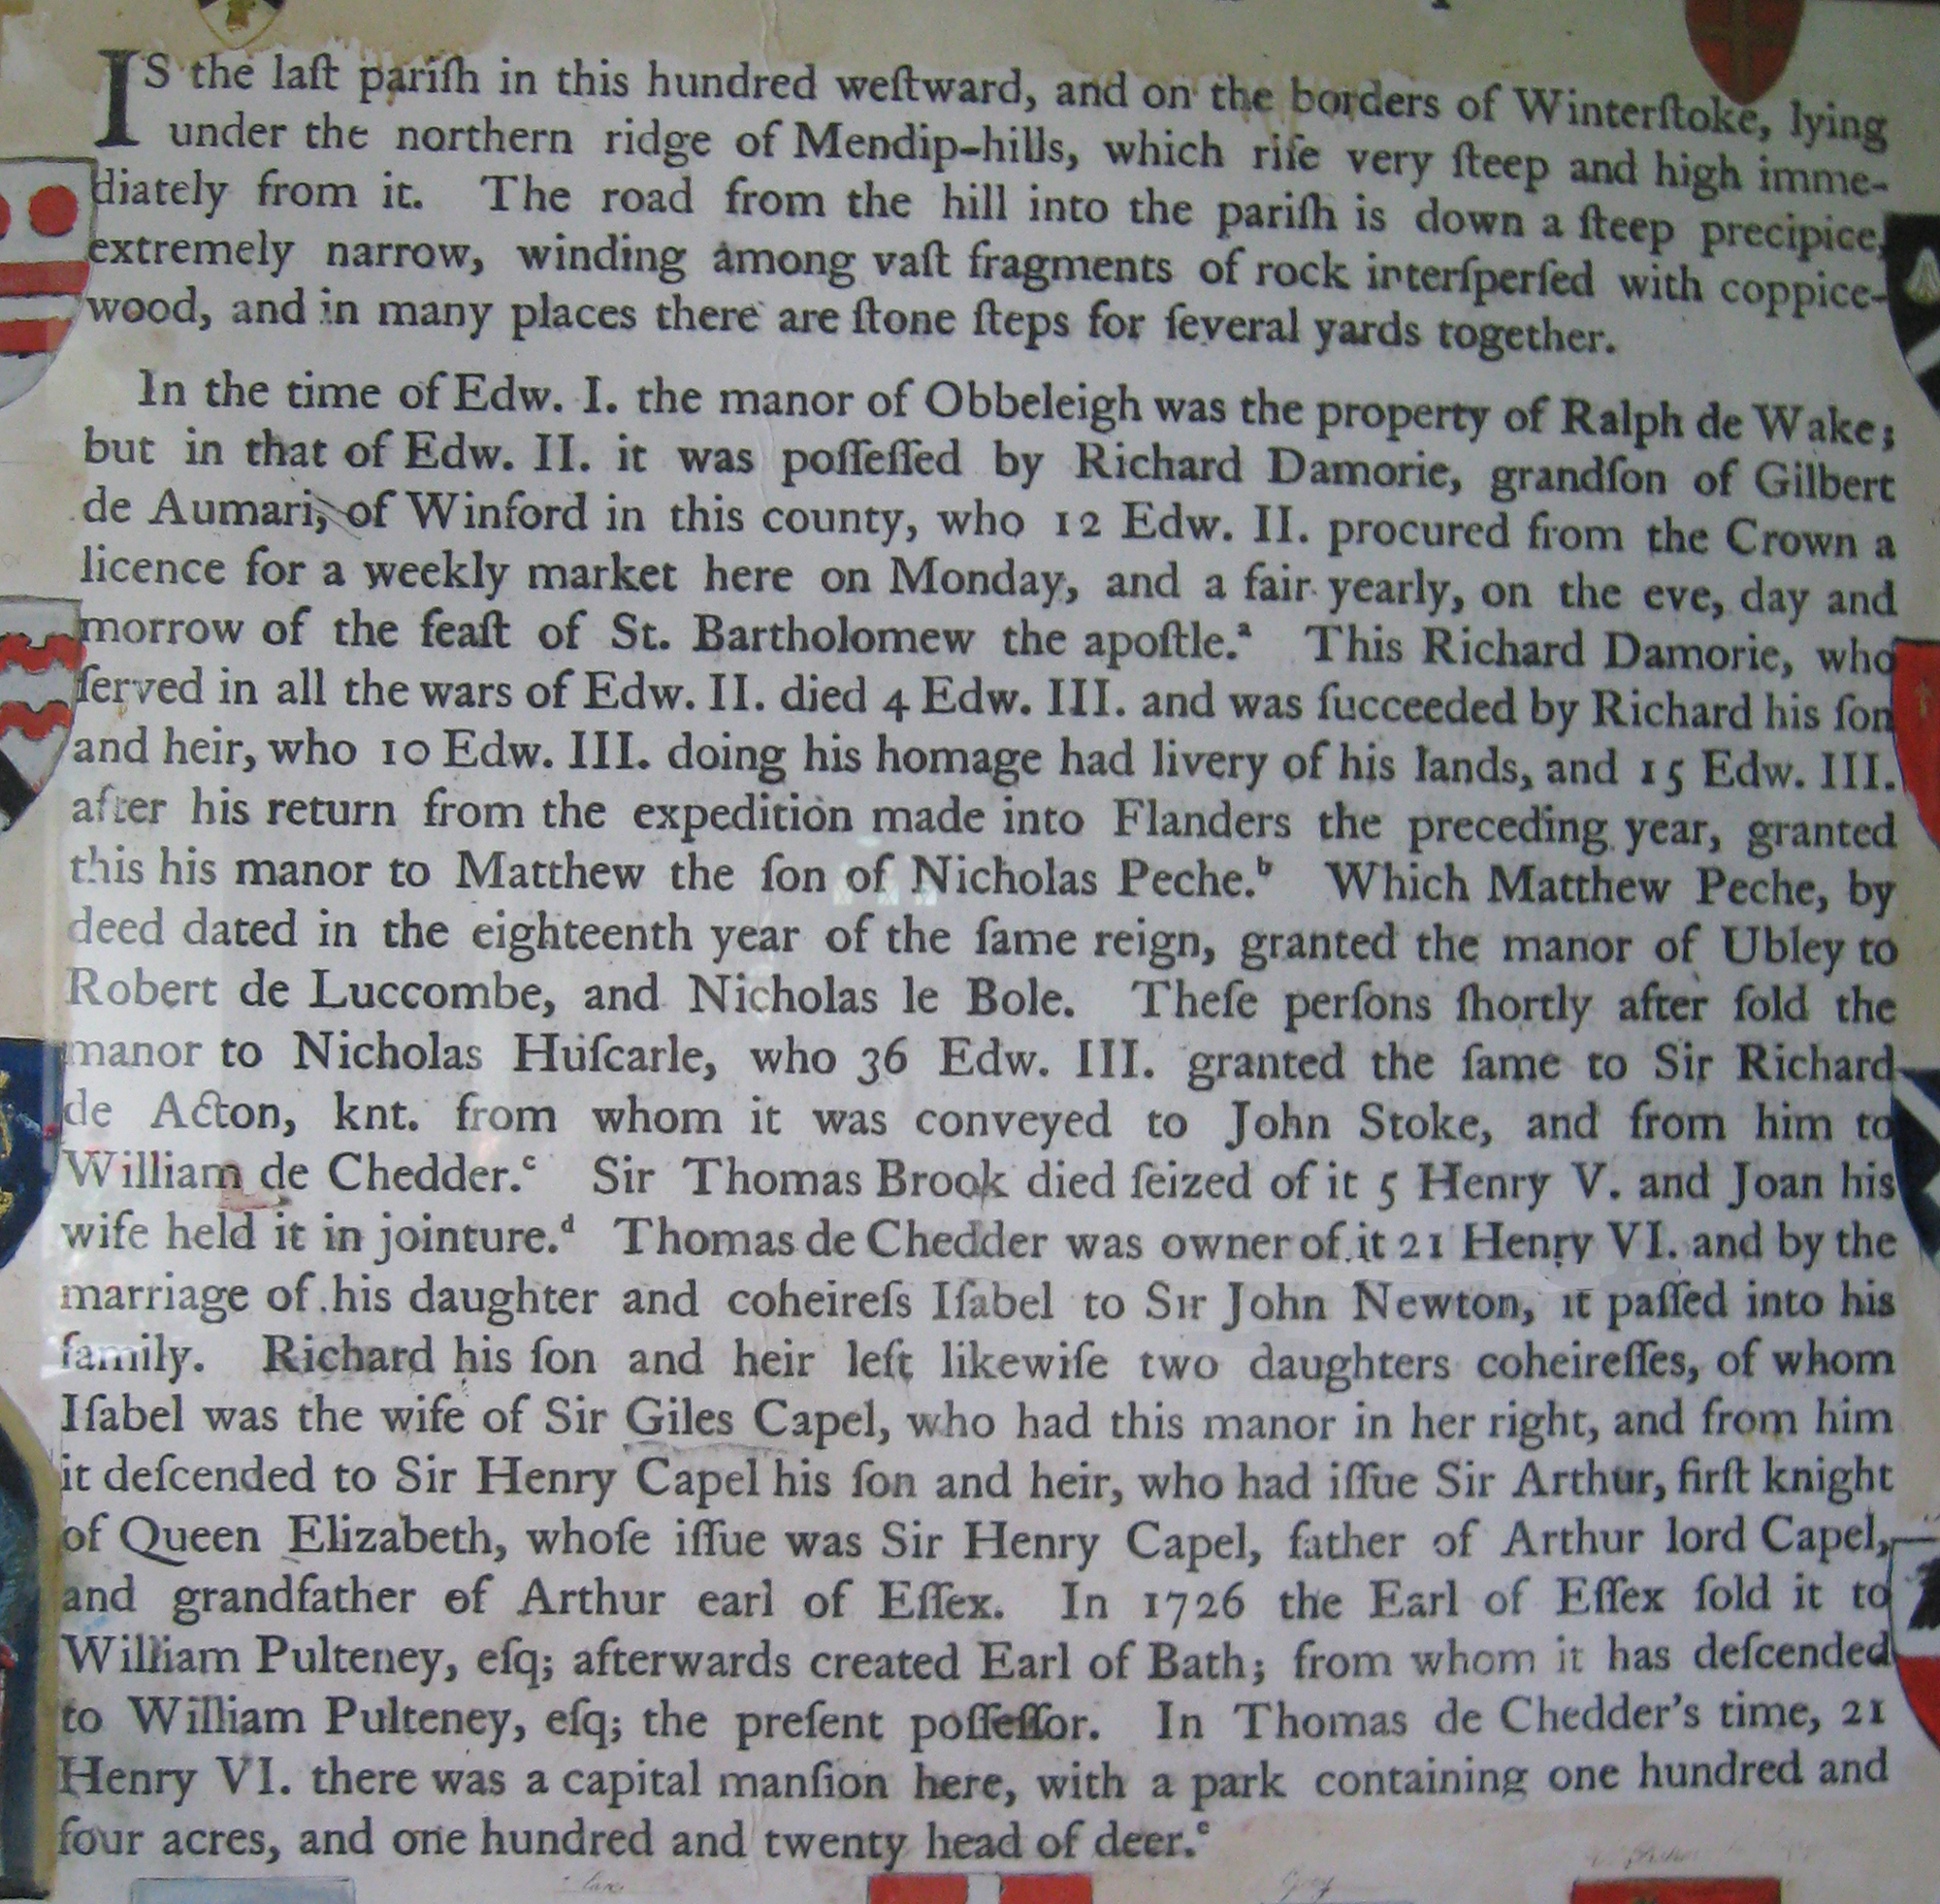 IS the laſt pariſh in this hundred weſtward, and on the borders of Winterſtoke, lying
under the northern ridge of Mendip-hills, which riſe very ſteep and high imme-
diately from it. The road from the hill into the pariſh is down a ſteep precipice,
extremely narrow, winding among vaſt fragments of rock interſperſed with coppice-
wood, and in many places there are ſtone ſteps for ſeveral yards together.
In the time of Edw. I. the manor of Obbeleigh was the property of Ralph de Wake;
but in that of Edw. II. it was poſſeſſed by Richard Damorie, grandſon of Gilbert
de Aumari, of Winford in this county, who 12 Edw. II. procured from the Crown a
licence for a weekly market here on Monday, and a fair yearly, on the eve, day and
morrow of the feaſt of St. Bartholomew the apoſtle.ᵃ This Richard Damorie, who
ſerved in all the wars of Edw. II. died 4 Edw. III. and was ſucceeded by Richard his ſon
and heir, who 10 Edw. III. doing his homage had livery of his lands, and 15 Edw. III.
after his return from the expedition made into Flanders the preceding year, granted
this his manor to Matthew the ſon of Nicholas Peche.ᵇ Which Matthew Peche, by
deed dated in the eighteenth year of the ſame reign, granted the manor of Ubley to
Robert de Luccombe, and Nicholas le Bole. Theſe perſons ſhortly after ſold the
manor to Nicholas Huſcarle, who 36 Edw. III. granted the ſame to Sir Richard
de Acton, knt. from whom it was conveyed to John Stoke, and from him to
William de Chedder.ᶜ Sir Thomas Brook died ſeized of it 5 Henry V. and Joan his
wife held it in jointure.ᵈ Thomas de Chedder was owner of it 21 Henry VI. and by the
marriage of his daughter and coheireſs Iſabel to Sir John Newton, it paſſed into his
family. Richard his ſon and heir left likewiſe two daughters coheireſſes, of whom
Iſabel was the wife of Sir Giles Capel, who had this manor in her right, and from him
it deſcended to Sir Henry Capel his ſon and heir, who had iſſue Sir Arthur, firſt knight
of Queen Elizabeth, whoſe iſſue was Sir Henry Capel, father of Arthur lord Capel,
and grandfather of Arthur earl of Eſſex. In 1726 the Earl of Eſſex ſold it to
William Pulteney, eſq; afterwards created Earl of Bath; from whom it has deſcended
to William Pulteney, eſq; the preſent poſſeſſor. In Thomas de Chedder's time, 21
Henry VI. there was a capital manſion here, with a park containing one hundred and
four acres, and one hundred and twenty head of deer.ᵉ